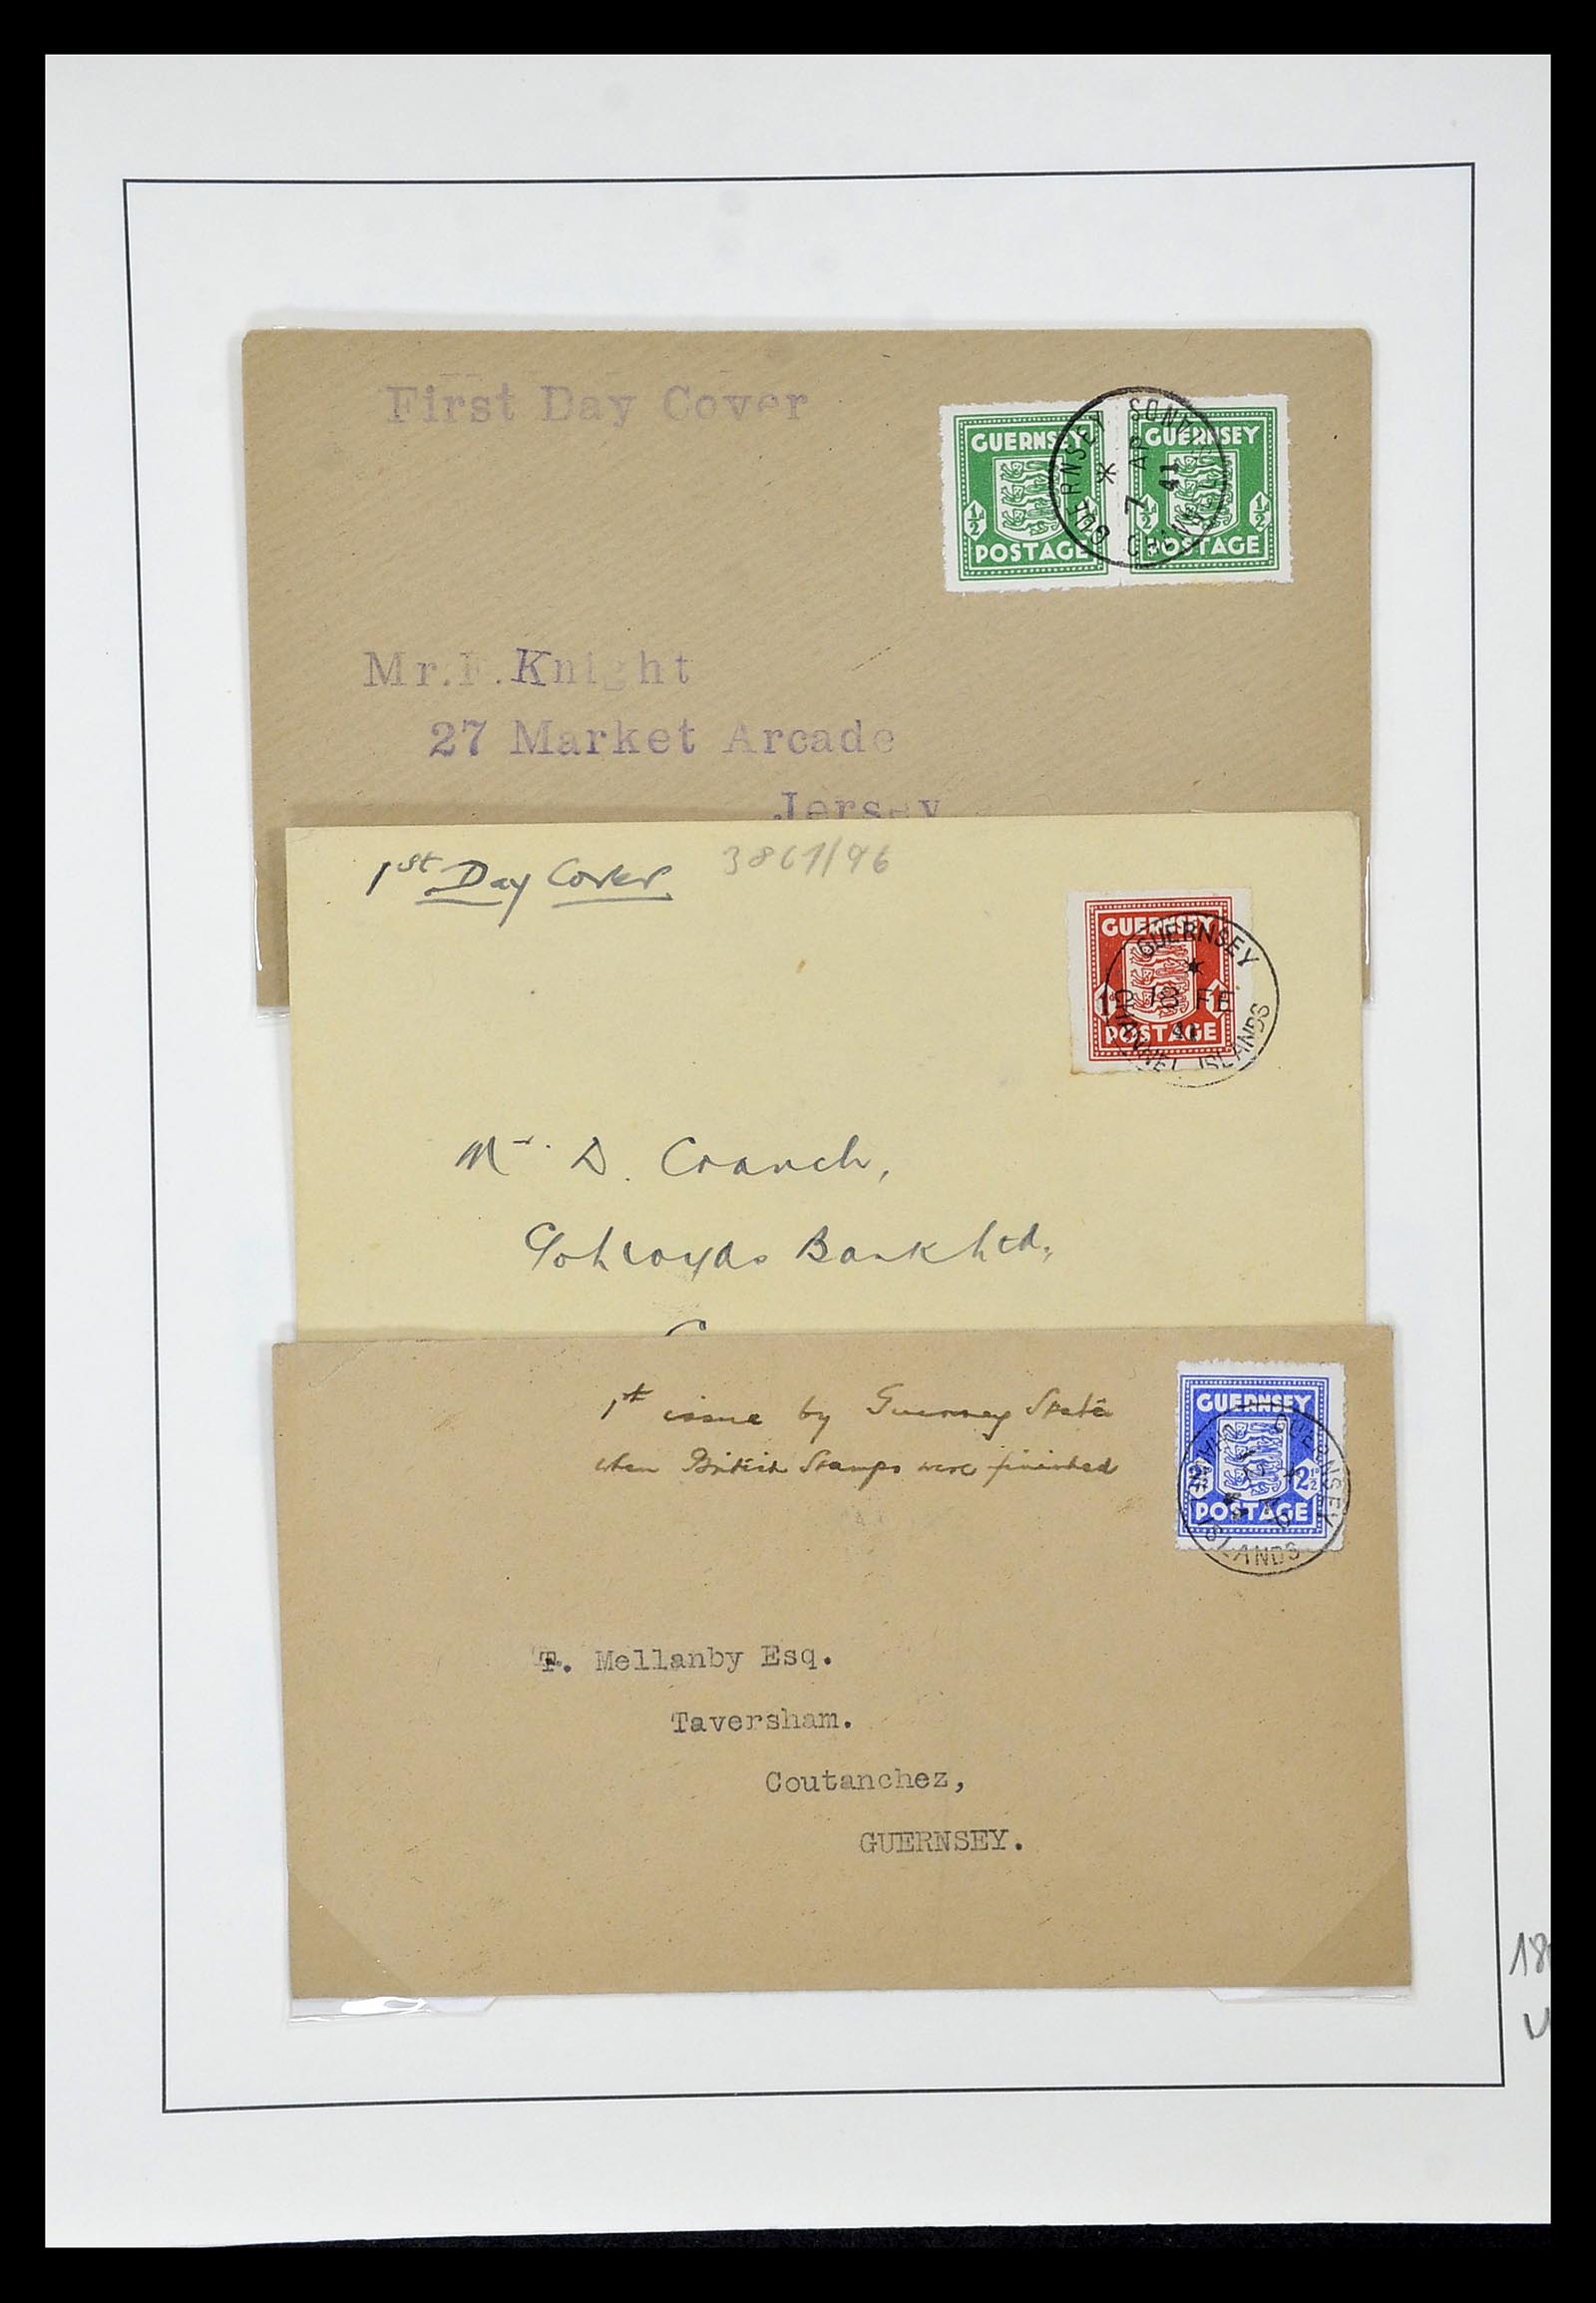 First Day Cover
GUERNSEY GUERNSEY
½d ½d ½d
POSTAGE POSTAGE
GUERNSEY CHANNEL ISLANDS
7 AP
41
Mr.F.Knight
27 Market Arcade
Jersey
1st Day Cover 3867/96
GUERNSEY
1d 1d
POSTAGE
GUERNSEY
18 FE
41
CHANNEL ISLANDS
Mr. D. Cranch,
C/o Lloyds Bank Ltd,
1st issue by Guernsey State
when British Stamps were finished
GUERNSEY
2½d
POSTAGE
GUERNSEY
ISLANDS
T. Mellanby Esq.
Taversham.
Coutanchez,
GUERNSEY.
18